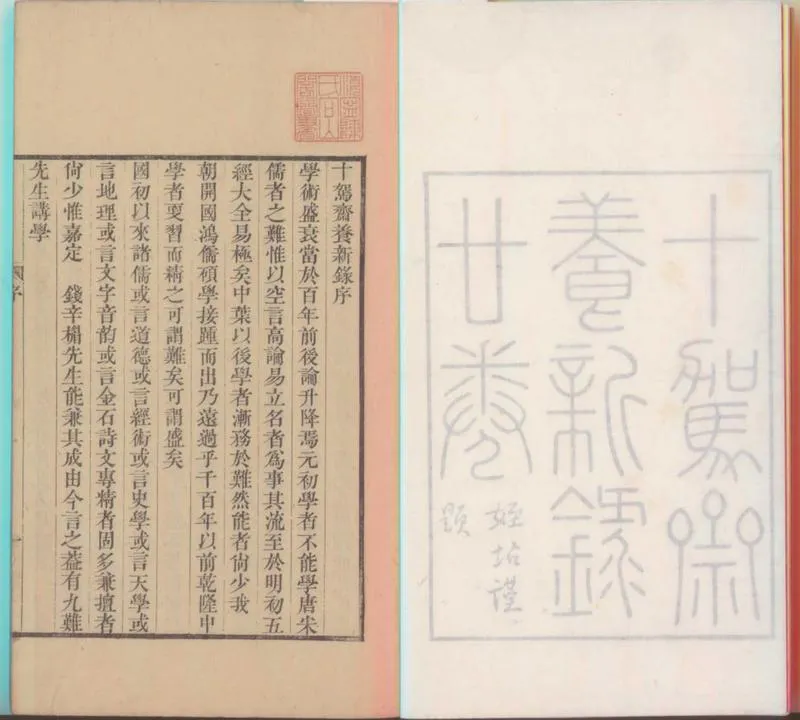 十駕齋
養新錄
廿卷
姪坫謹
題
十駕齋養新錄序
學術盛衰當於百年前後論升降焉元初學者不能學唐宋
儒者之難惟以空言高論易立名者爲事其流至於明初五
經大全易極矣中葉以後學者漸務於難然能者尙少我
朝開國鴻儒碩學接踵而出乃遠過乎千百年以前乾隆中
學者更習而精之可謂難矣可謂盛矣
國初以來諸儒或言道德或言經術或言史學或言天學或
言地理或言文字音韵或言金石詩文專精者固多兼擅者
尙少惟嘉定　錢辛楣先生能兼其成由今言之葢有九難
先生講學